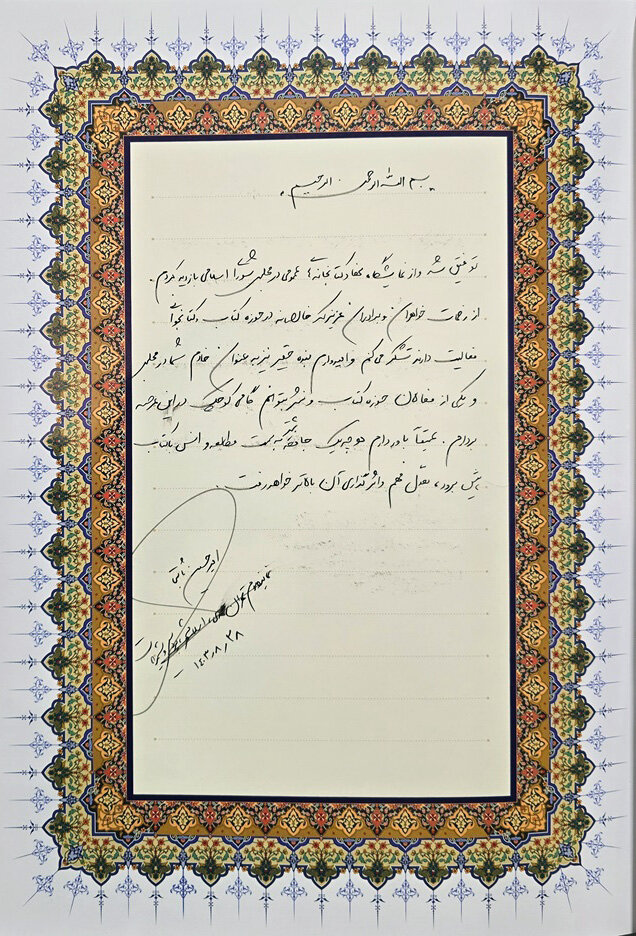 بسم الله الرحمن الرحیم
توفیق شد و از نمایشگاه نهاد کتابخانه های عمومی در مجلس شورای اسلامی بازدید کردم.
از زحمات خواهران و برادران عزیز که خالصانه در حوزه کتاب و کتابخوانی
فعالیت دارند تشکر می کنم و امیدوارم بنده حقیر نیز به عنوان خادم شما در مجلس
و یکی از فعالان حوزه کتاب و نشر بتوانم گامی کوچک در این عرصه
بردارم. عمیقاً باور دارم هر چه یک جامعه بیشتر به سمت مطالعه و انس با کتاب
پیش برود، تعقل، فهم و اثرگذاری آن بالاتر خواهد رفت.
امیرحسین ثابتی
نماینده مردم تهران
۱۴۰۳/۸/۲۸